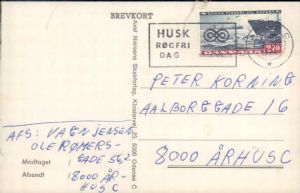 BREVKORT
HUSK
RØGFRI
DAG
DANMARK
270
C
Axel Nielsens Skiltforlag, Klosterv. 23, 5000 Odense C
PETER KORNING
AALBORGGADE 16
8000 ÅRHUS C
AFS: VAGN JENSEN
OLE RØMERS-
GADE 56,
8000 ÅR-
HUS C
Modtaget
Afsendt